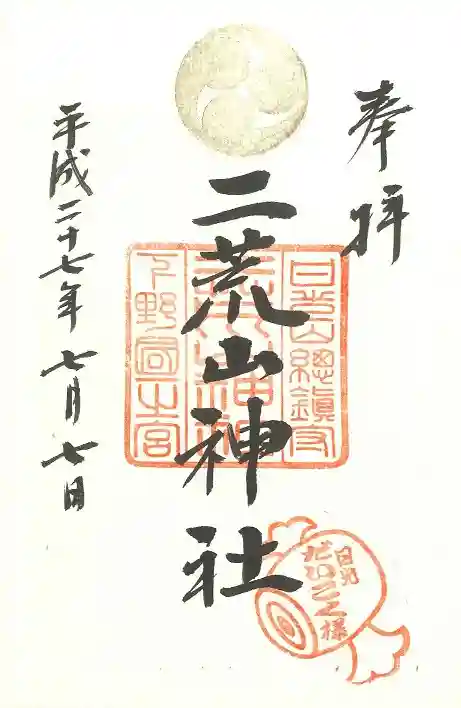 奉拝
二荒山神社
日光山總鎮守
下野國一之宮
日光
だいこく様
平成二十七年七月七日